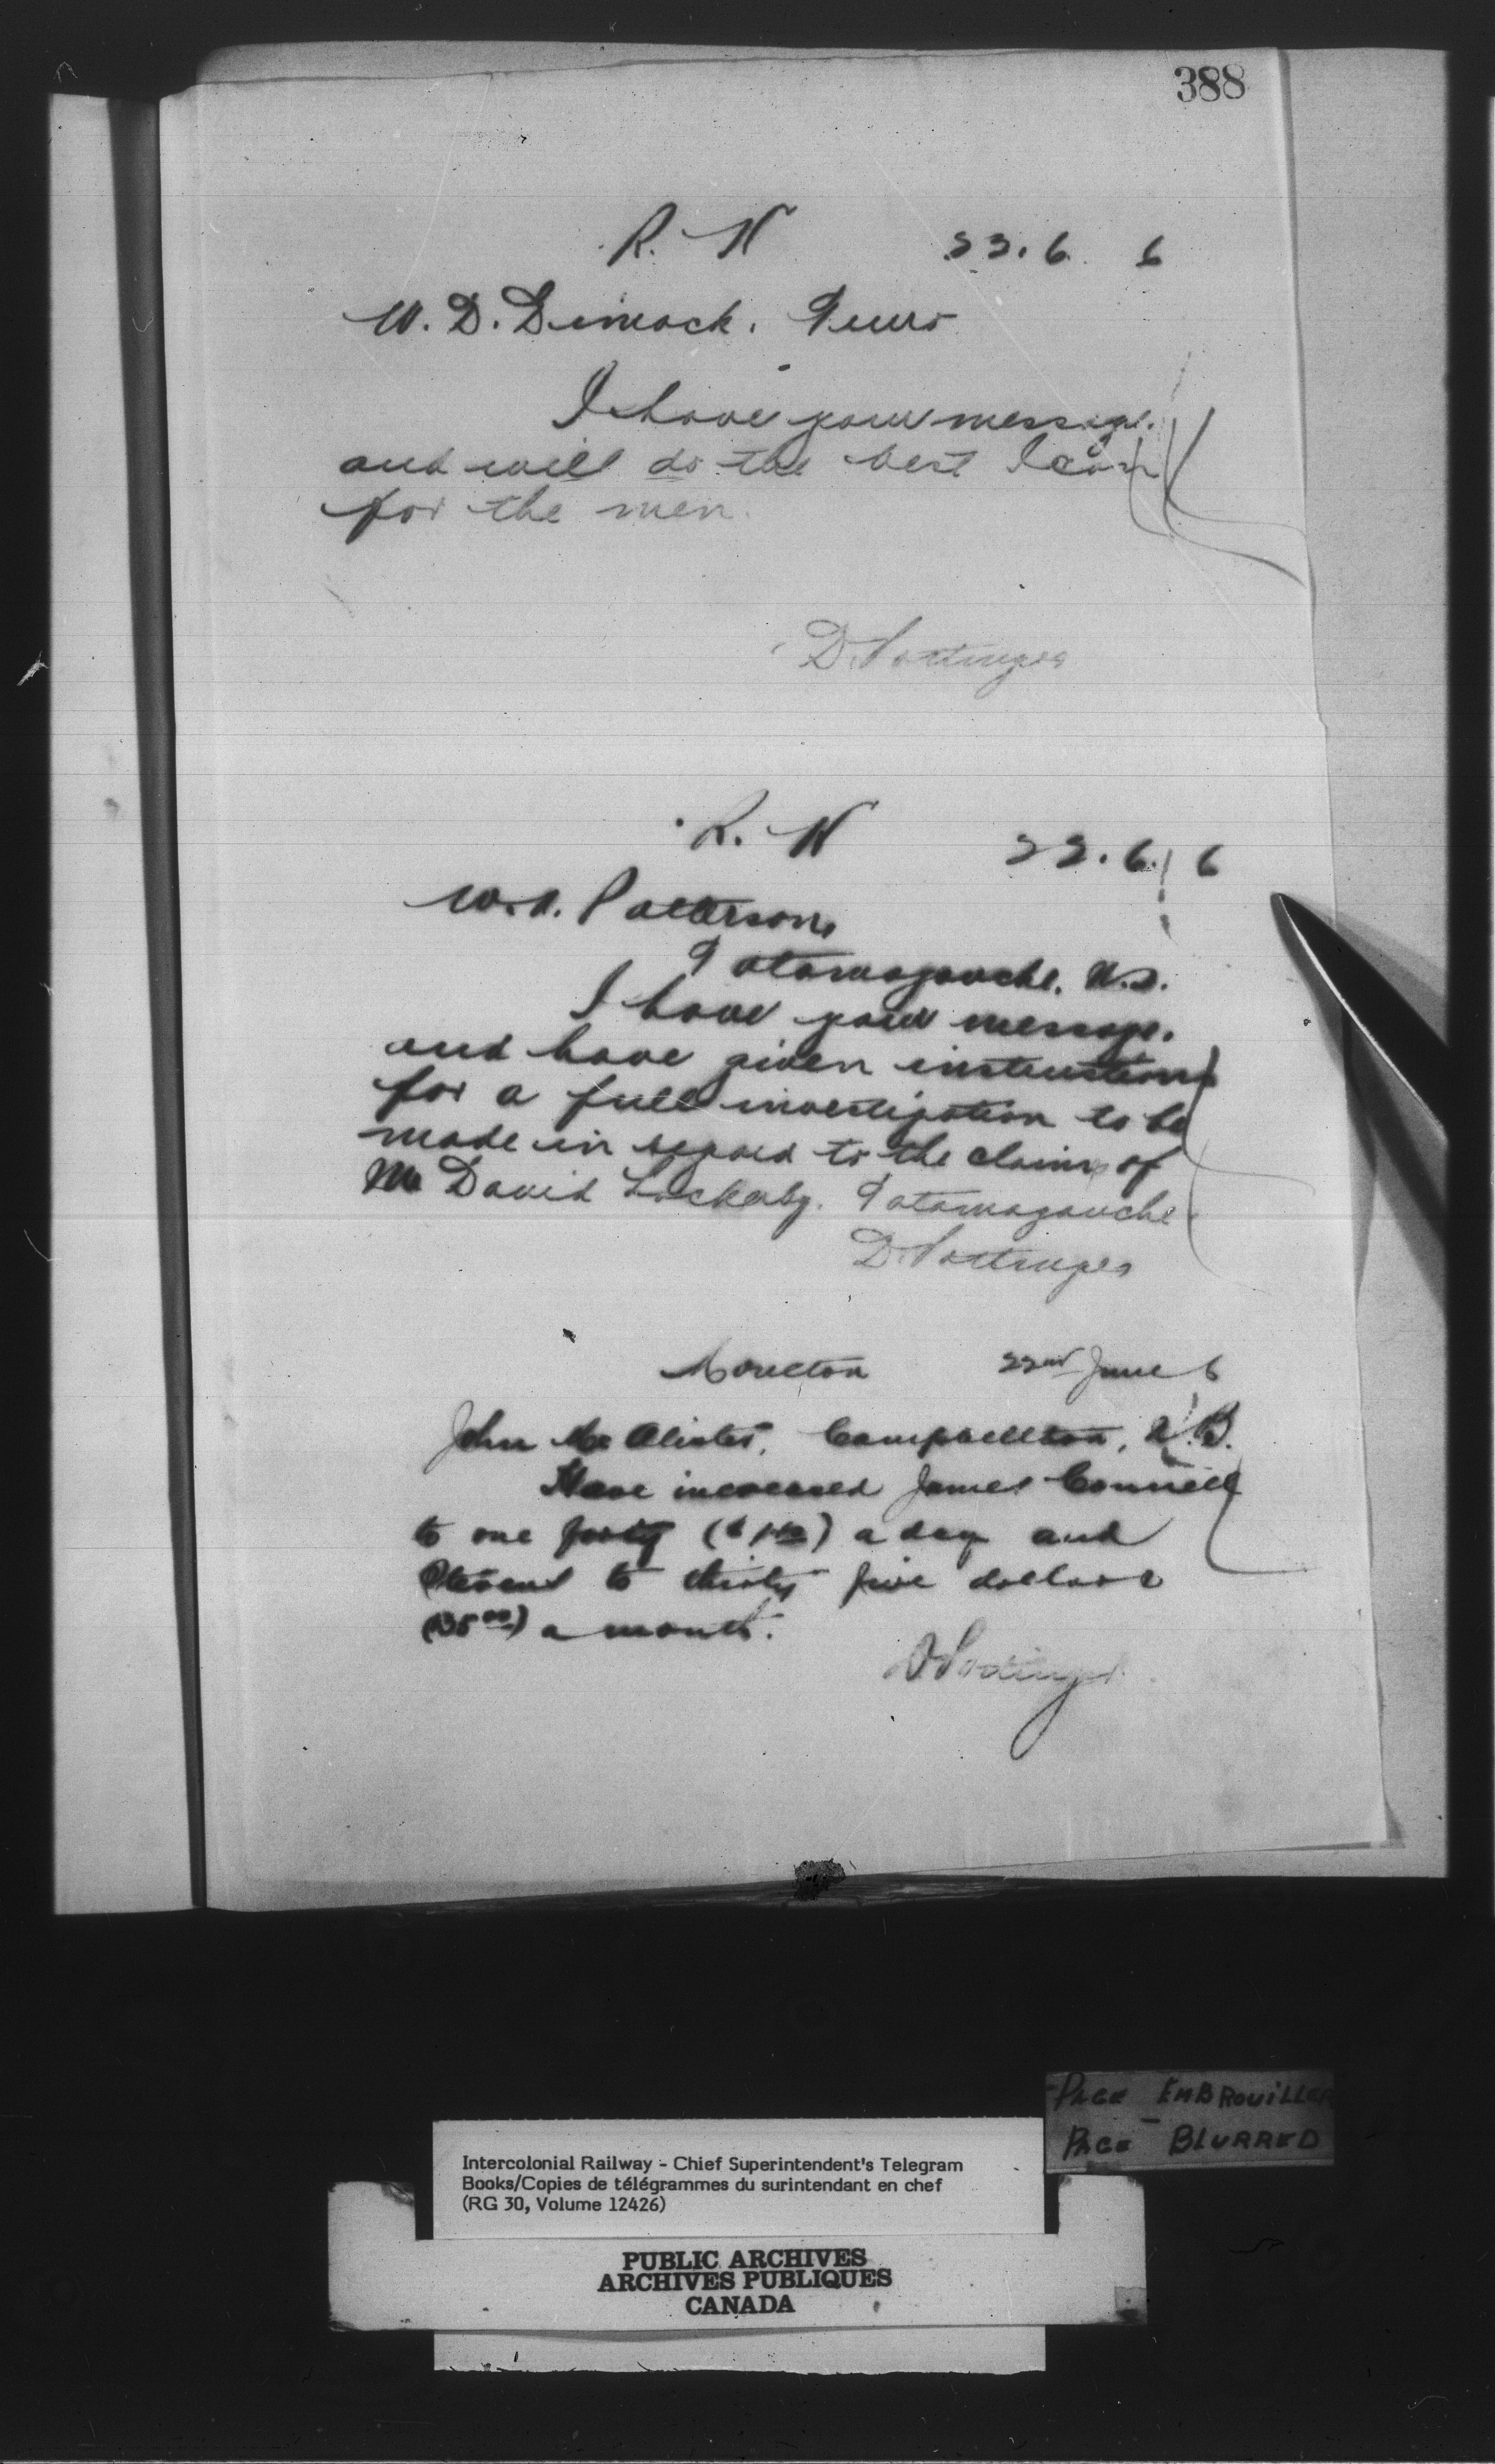 388
R. W 22.6. 6
W. D. Dimock. Truro
I have your message.
and will do the best I can
for the men.
D. Pottinger
R. W 22.6. 6
W.A. Patterson,
Tatamagouche. N.S.
I have your message.
and have given instructions
for a full investigation to be
made in regard to the claim of
Mr David Lockerby. Tatamagouche
D. Pottinger
Moncton 22nd June 6
John McAlister, Campbellton, N.B.
Have increased James Connell
to one forty ($1.40) a day and
to thirty five dollars
(35.00) a month.
D. Pottinger
PAGE EMBROUILLER
PAGE BLURRED
Intercolonial Railway - Chief Superintendent's Telegram
Books/Copies de télégrammes du surintendant en chef
(RG 30, Volume 12426)
PUBLIC ARCHIVES
ARCHIVES PUBLIQUES
CANADA